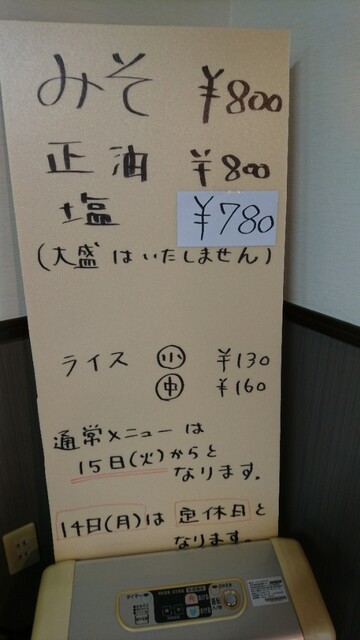 みそ ¥800
正油 ¥800
塩 ¥780
(大盛はいたしません)
ライス ㊤小 ¥130
㊥ ¥160
通常メニューは
15日(火)からと
なります.
14日(月)は 定休日と
なります.